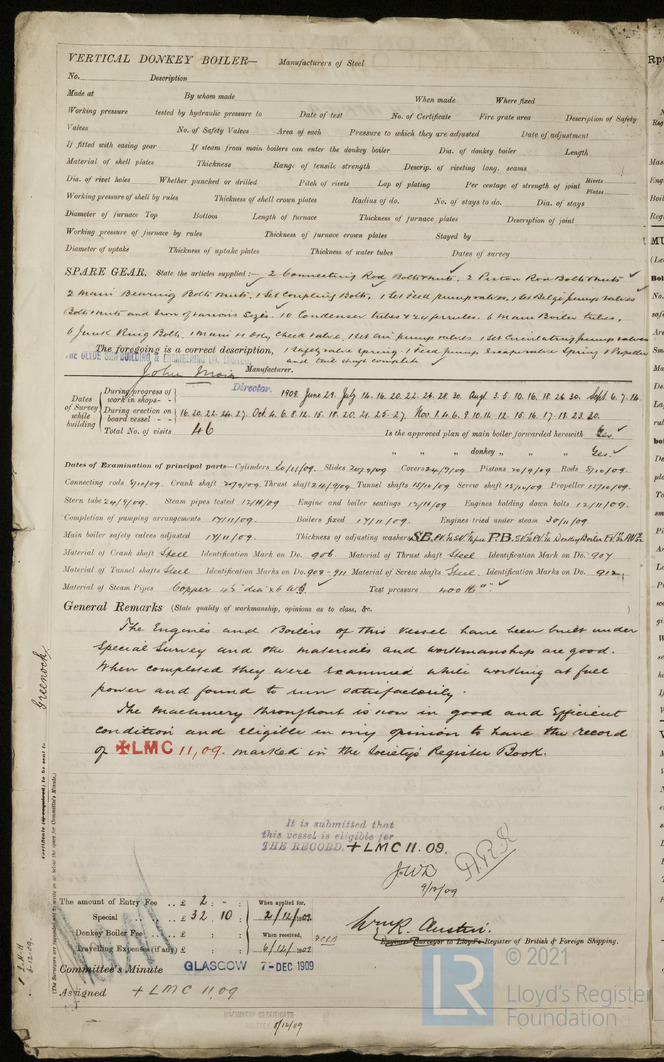 VERTICAL DONKEY BOILER— Manufacturers of Steel
No. Description
Made at By whom made When made Where fixed
Working pressure tested by hydraulic pressure to Date of test No. of Certificate Fire grate area Description of Safety
Valves No. of Safety Valves Area of each Pressure to which they are adjusted Date of adjustment
If fitted with easing gear If steam from main boilers can enter the donkey boiler Dia. of donkey boiler Length
Material of shell plates Thickness Range of tensile strength Descrip. of riveting long. seams
Dia. of rivet holes Whether punched or drilled Pitch of rivets Lap of plating Per centage of strength of joint Rivets Plates
Working pressure of shell by rules Thickness of shell crown plates Radius of do. No. of stays to do. Dia. of stays
Diameter of furnace Top Bottom Length of furnace Thickness of furnace plates Description of joint
Working pressure of furnace by rules Thickness of furnace crown plates Stayed by
Diameter of uptake Thickness of uptake plates Thickness of water tubes Dates of survey
SPARE GEAR. State the articles supplied:— 2 Connecting Rod Bolts & nuts, 2 Piston Rod Bolts & nuts
2 Main Bearing Bolts & nuts, 1 Set Coupling Bolts, 1 Set Feed pump valves, 1 Set Bilge pump valves
Bolts nuts and Iron of various Sizes. 10 Condenser tubes & 20 ferrules. 6 Main Boiler tubes,
6 Junk Ring Bolts. 1 Main & Check valve, 1 Set air pump valves 1 Set Circulating pump valves
The foregoing is a correct description, 1 Safety valve Spring. 1 Feed pump Escape valve Spring 1 Propeller
and tail shaft complete
THE CLYDE SHIPBUILDING & ENGINEERING CO. LIMITED.
John Manufacturer.
Director.
Dates of Survey while building
During progress of work in shops - - 1909. June 29. July 14. 16. 20. 22. 24. 28. 30. Aug. 3. 5. 10. 16. 18. 26. 30. Sept. 6. 7. 14.
During erection on board vessel - - 16. 20. 22. 24. 27. Oct. 4. 6. 8. 12. 15. 18. 20. 21. 25. 27. Nov. 1. 4. 6. 8. 10. 11. 12. 15. 16. 17. 18. 23. 30.
Total No. of visits 46 Is the approved plan of main boiler forwarded herewith Yes.
" " " donkey " " Yes.
Dates of Examination of principal parts—Cylinders 20/11/09. Slides 20/9/09 Covers 24/9/09 Pistons 20/9/09 Rods 5/10/09.
Connecting rods 5/10/09. Crank shaft 20/9/09 Thrust shaft 24/9/09 Tunnel shafts 15/10/09 Screw shaft 15/10/09 Propeller 12/10/09.
Stern tube 24/9/09. Steam pipes tested 12/11/09 Engine and boiler seatings 12/11/09 Engines holding down bolts 12/11/09.
Completion of pumping arrangements 17/11/09. Boilers fixed 17/11/09. Engines tried under steam 30/11/09
Main boiler safety valves adjusted 17/11/09. Thickness of adjusting washers S.B. P.B. Donkey Boiler
Material of Crank shaft Steel Identification Mark on Do. 906. Material of Thrust shaft Steel Identification Mark on Do. 907
Material of Tunnel shafts Steel Identification Marks on Do. 908-911 Material of Screw shafts Steel. Identification Marks on Do. 912
Material of Steam Pipes Copper 4½" dia x 6 WG Test pressure 400 lb
General Remarks (State quality of workmanship, opinions as to class, &c.
The Engines and Boilers of this Vessel have been built under
Special Survey and the materials and workmanship are good.
When completed they were examined while working at full
power and found to run satisfactorily.
The Machinery throughout is now in good and Efficient
condition and eligible in my opinion to have the record
of ✠LMC 11,09. marked in the Society's Register Book.
It is submitted that
this vessel is eligible for
THE RECORD. + LMC 11. 09.
J.W.D.
9/12/09
The amount of Entry Fee .. £ 2 : - : When applied for,
Special .. .. £ 32. 10 : 2/12/1909
Donkey Boiler Fee .. .. £ When received,
Travelling Expenses (if any) £ 6/12/1909
Wm R. Austin.
Engineer Surveyor to Lloyd's Register of British & Foreign Shipping.
Committee's Minute GLASGOW 7-DEC 1909
Assigned + LMC 11.09
MACHINERY CERTIFICATE
WRITTEN 8/12/09
Greenock.
Certificate (if required) to be sent to
(The Surveyors are requested not to write on or below the space for Committee's Minute.)
6.12.09.
© 2021
LR
Lloyd's Register
Foundation
Rpt